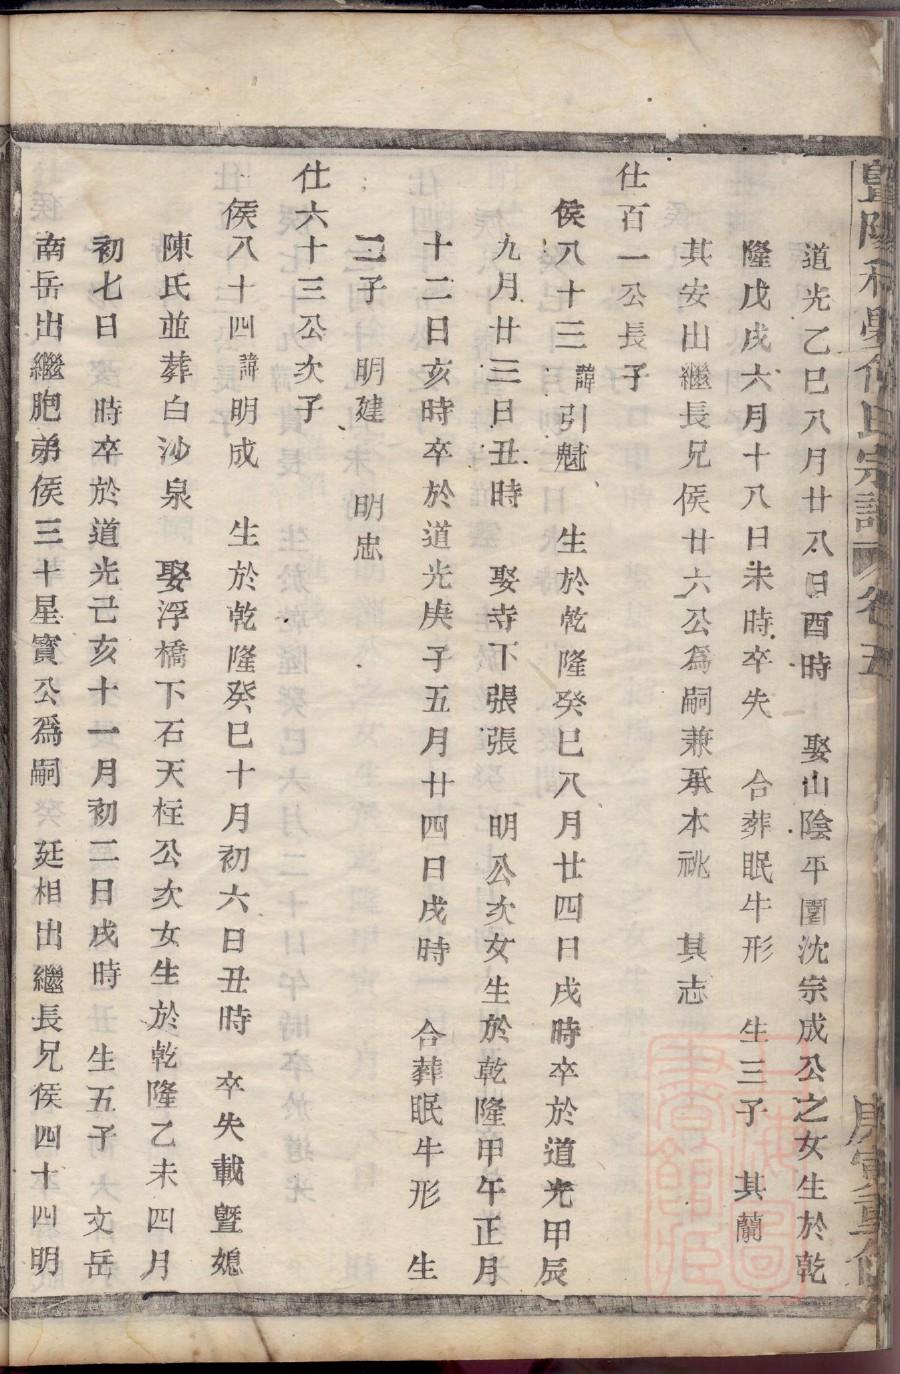 道光乙巳八月廿八日酉時　娶山陰平圍沈宗成公之女生於乾
隆戊戌六月十八日未時卒失　合葬眠牛形　生三子　其蘭
其安出繼長兄侯廿六公為嗣兼承本祧　其志
仕百一公長子
侯八十三諱引魁　生於乾隆癸巳八月廿四日戌時卒於道光甲辰
九月廿三日丑時　娶寺下張張　明公次女生於乾隆甲午正月
十二日亥時卒於道光庚子五月廿四日戌時　合葬眠牛形　生
二子　明建　明忠
仕六十三公次子
侯八十四諱明成　生於乾隆癸巳十月初六日丑時　卒失載暨媳
陳氏並葬白沙泉　娶浮橋下石天柱公次女生於乾隆乙未四月
初七日　時卒於道光己亥十一月初二日戌時　生五子　文岳
南岳出繼胞弟侯三十星寶公為嗣　廷相出繼長兄侯四十四明
宗譜　卷五　庚寅重修